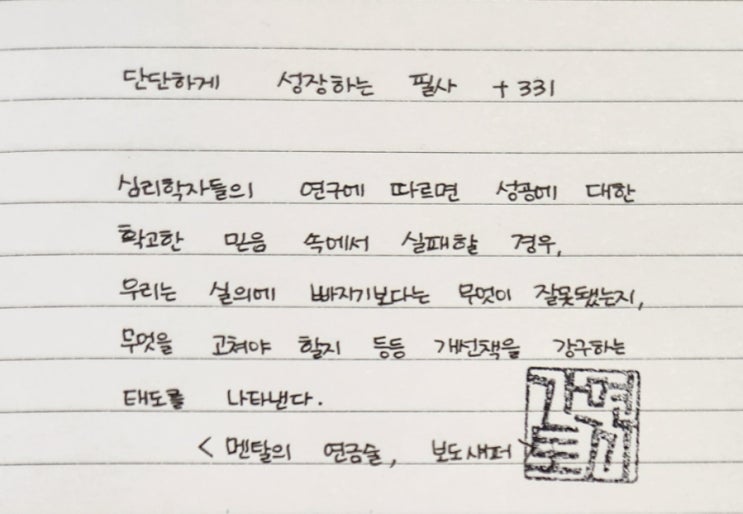 단단하게 성장하는 필사 + 331
심리학자들의 연구에 따르면 성공에 대한
확고한 믿음 속에서 실패할 경우,
우리는 실의에 빠지기보다는 무엇이 잘못됐는지,
무엇을 고쳐야 할지 등등 개선책을 강구하는
태도를 나타낸다.
< 멘탈의 연금술, 보도섀퍼 >